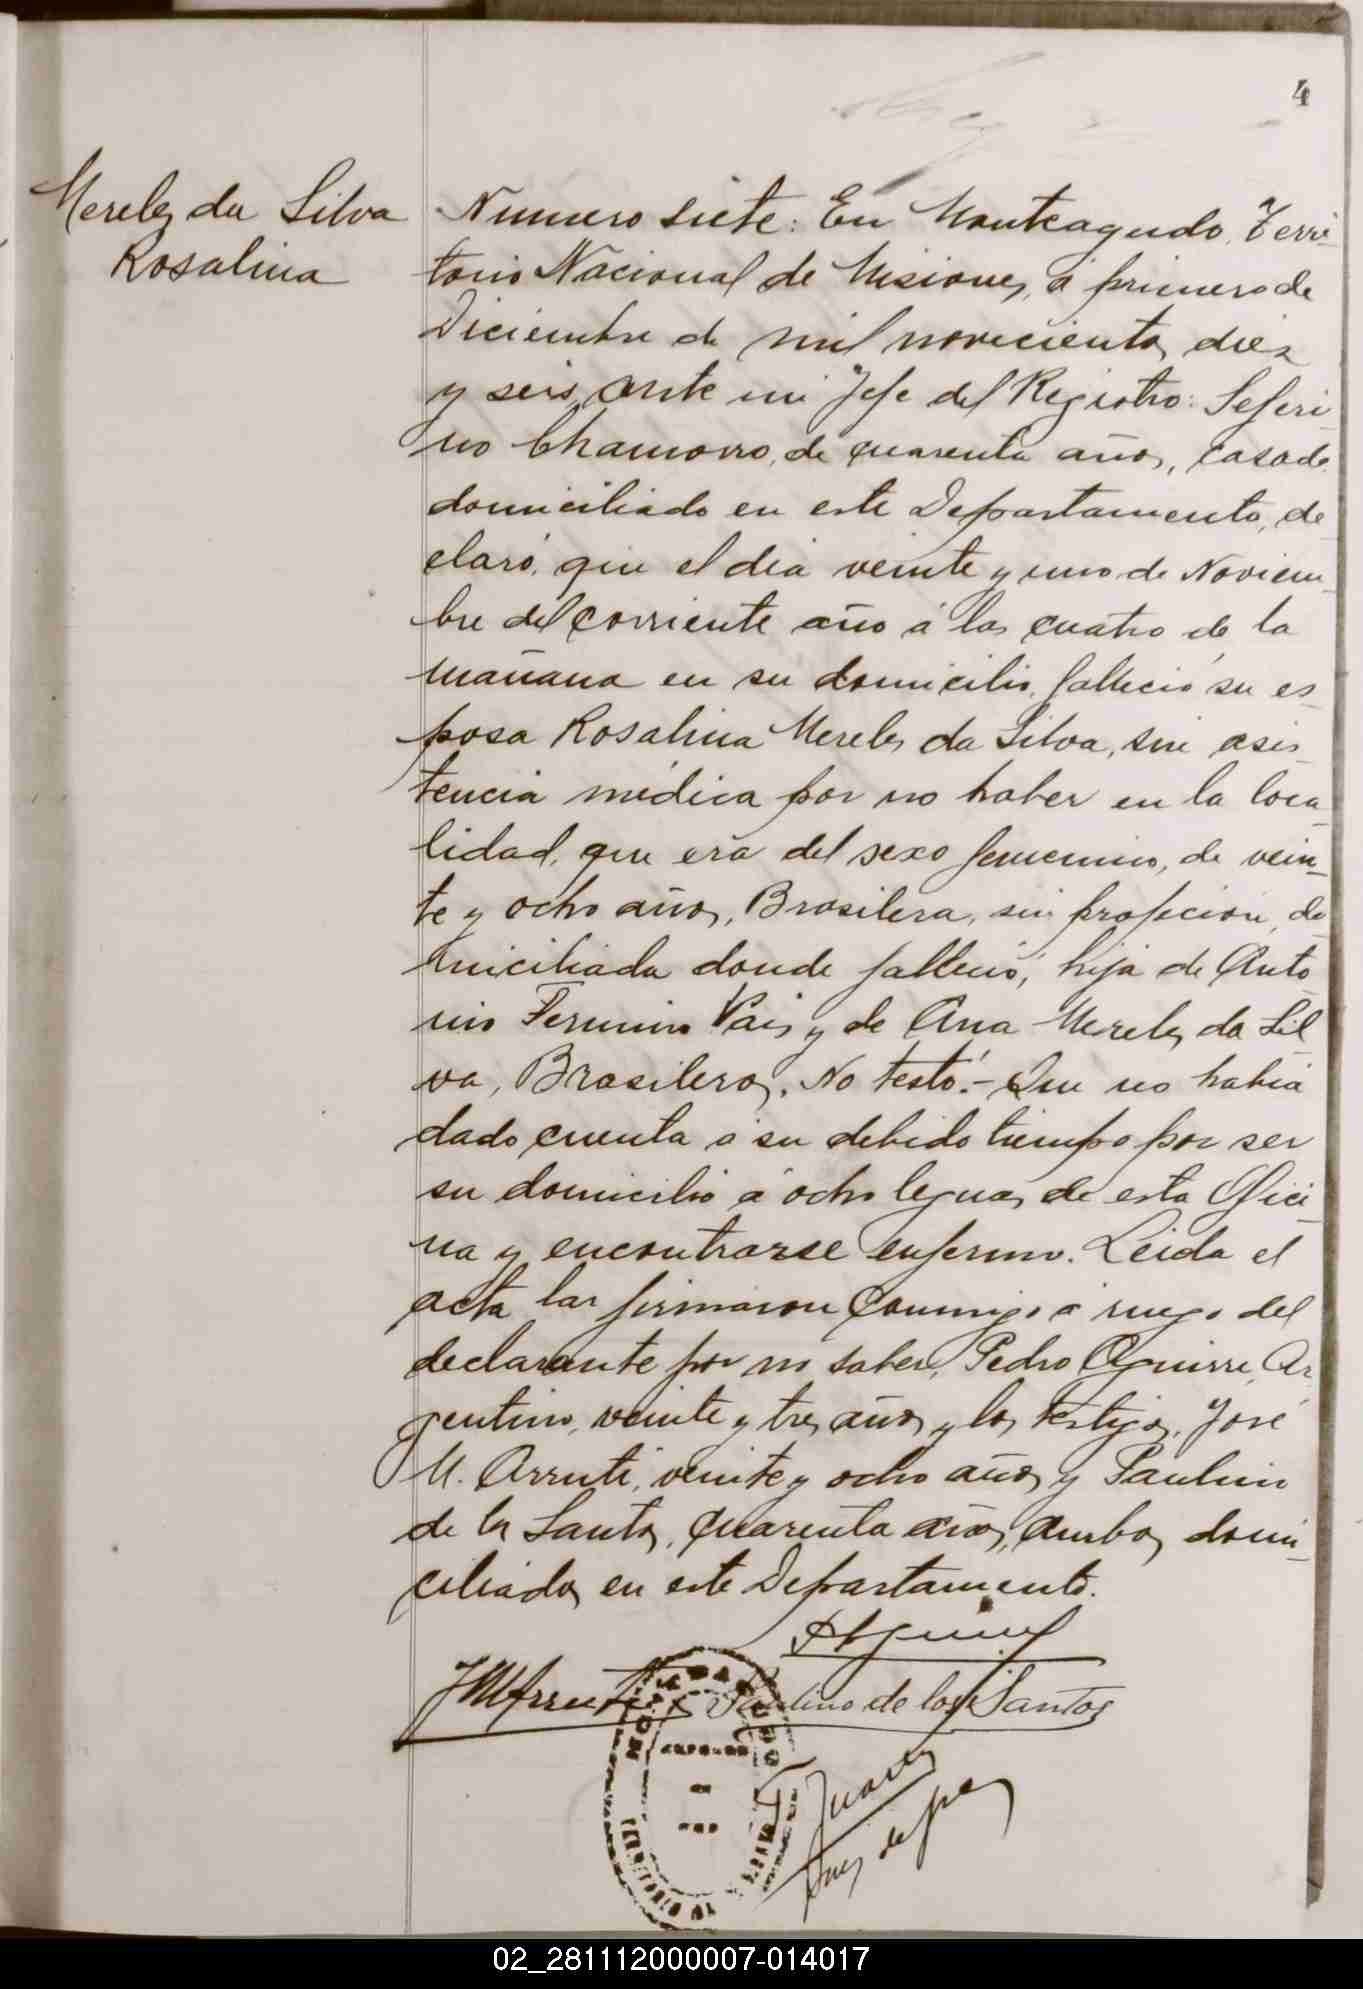 4
Mereles da Silva
Rosalina
Numero siete: En Monteagudo, Terri-
torio Nacional de Misiones, á primero de
Diciembre de mil novecientos diez
y seis, ante mi Jefe del Registro: Seferi-
no Chamorro, de cuarenta años, casado
domiciliado en este Departamento, de-
claró, que el dia veinte y uno de Noviem-
bre del corriente año á las cuatro de la
mañana en su domicilio, falleció su es-
posa Rosalina Mereles da Silva, sin asis-
tencia médica por no haber en la loca-
lidad, que era del sexo femenino, de vein-
te y ocho años, Brasilera, sin profecion, do-
miciliada donde falleció, hija de Anto-
nio Fermino Pais y de Ana Mereles da Sil-
va, Brasileros. No testó.- Que no habia
dado cuenta á su debido tiempo por ser
su domicilio á ocho leguas de esta Ofici-
na y encontrarse enfermo. Leida el
acta la firmaron conmigo á ruego del
declarante por no saber, Pedro Aguirre, Ar-
gentino, veinte y tres años y los testigos, José
M. Arruti, veinte y ocho años y Paulino
de los Santos, cuarenta años, ambos domi-
ciliados en este Departamento.
PAguirre
JMArruti Paulino de los Santos
Juarez
Juez de paz
02_281112000007-014017